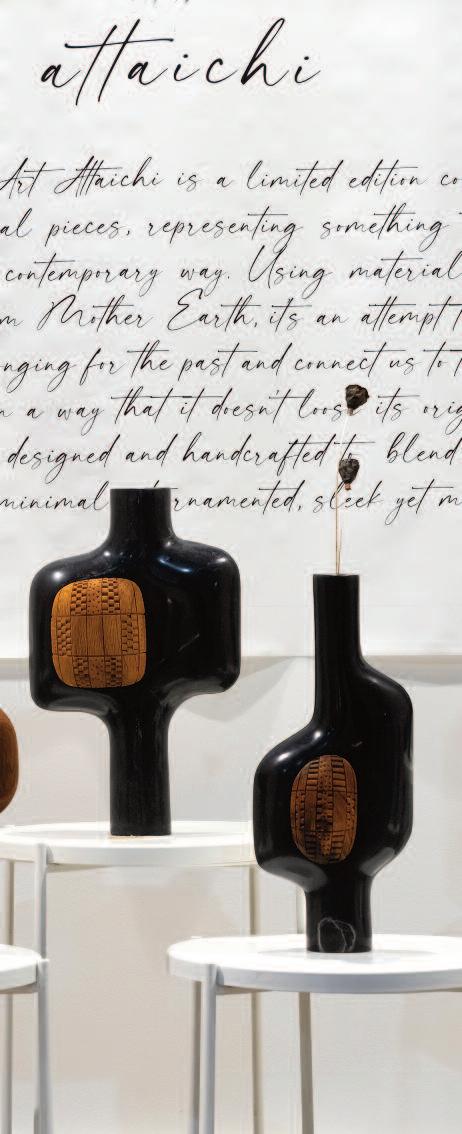 attaichi
Art Attaichi is a limited edition co
al pieces, representing something
contemporary way. Using material
m Mother Earth, it's an attempt t
nging for the past and connect us to t
n a way that it doesn't loose its orig
designed and handcrafted to blend
minimal ornamented, sleek yet m